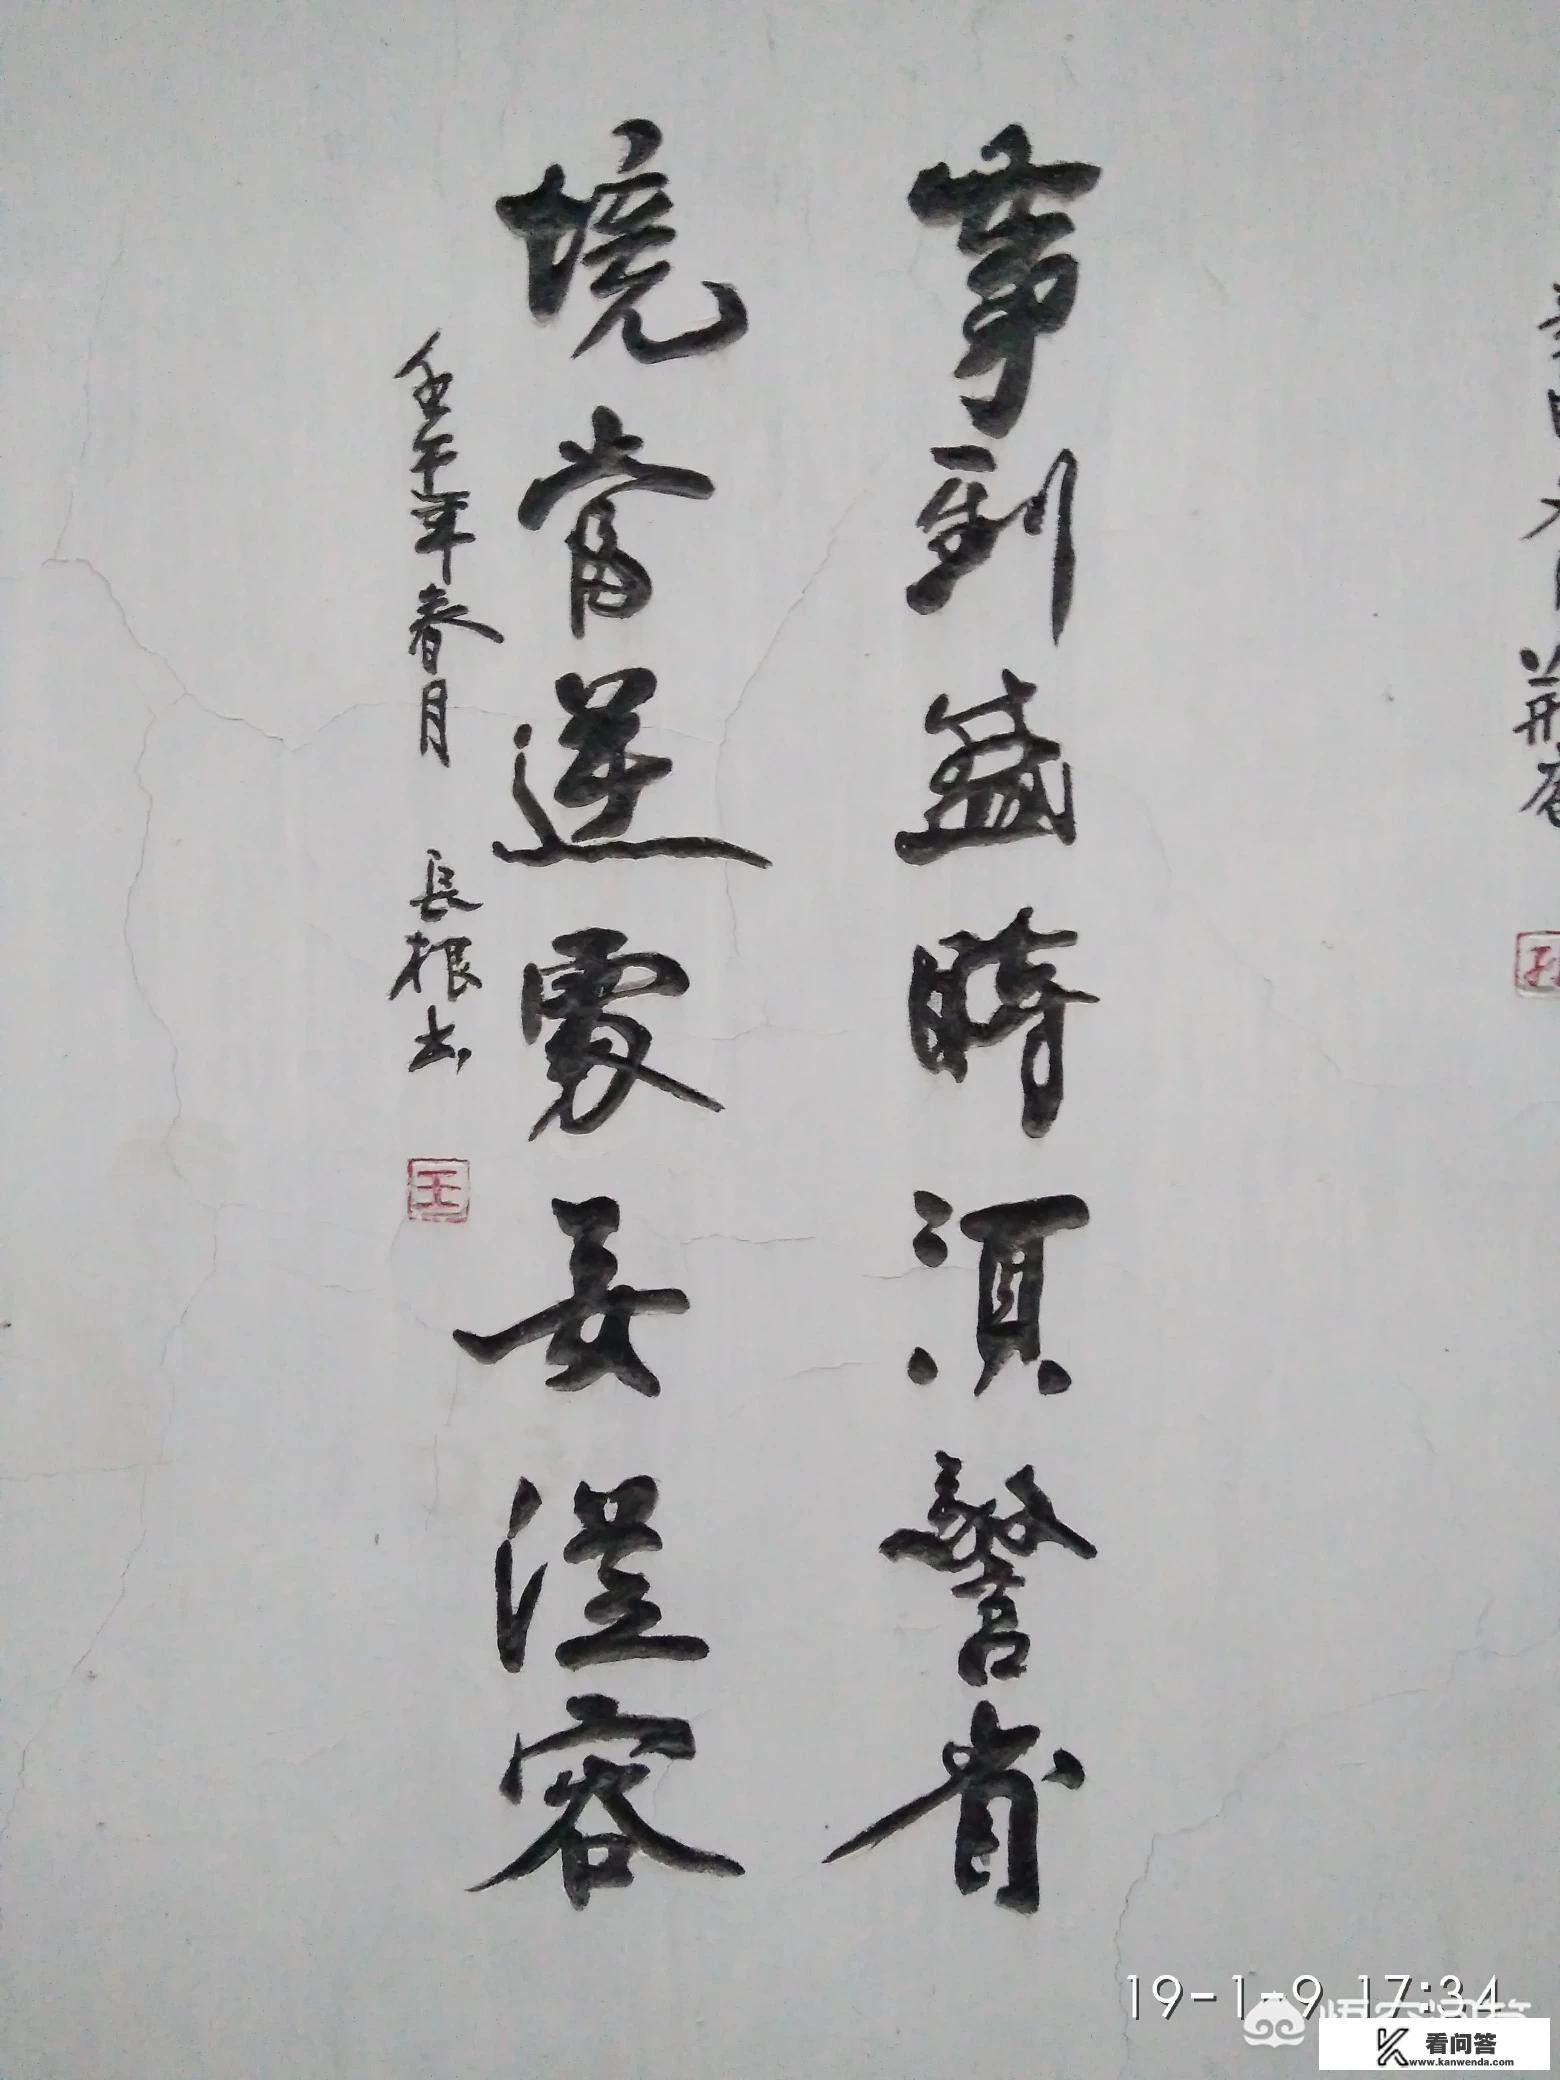 事到盛時須警省
境當逆處要從容
壬午年春月 長根书
王
荆庵
19-1-9 17:34
悟空问答
看问答
www.kanwenda.com